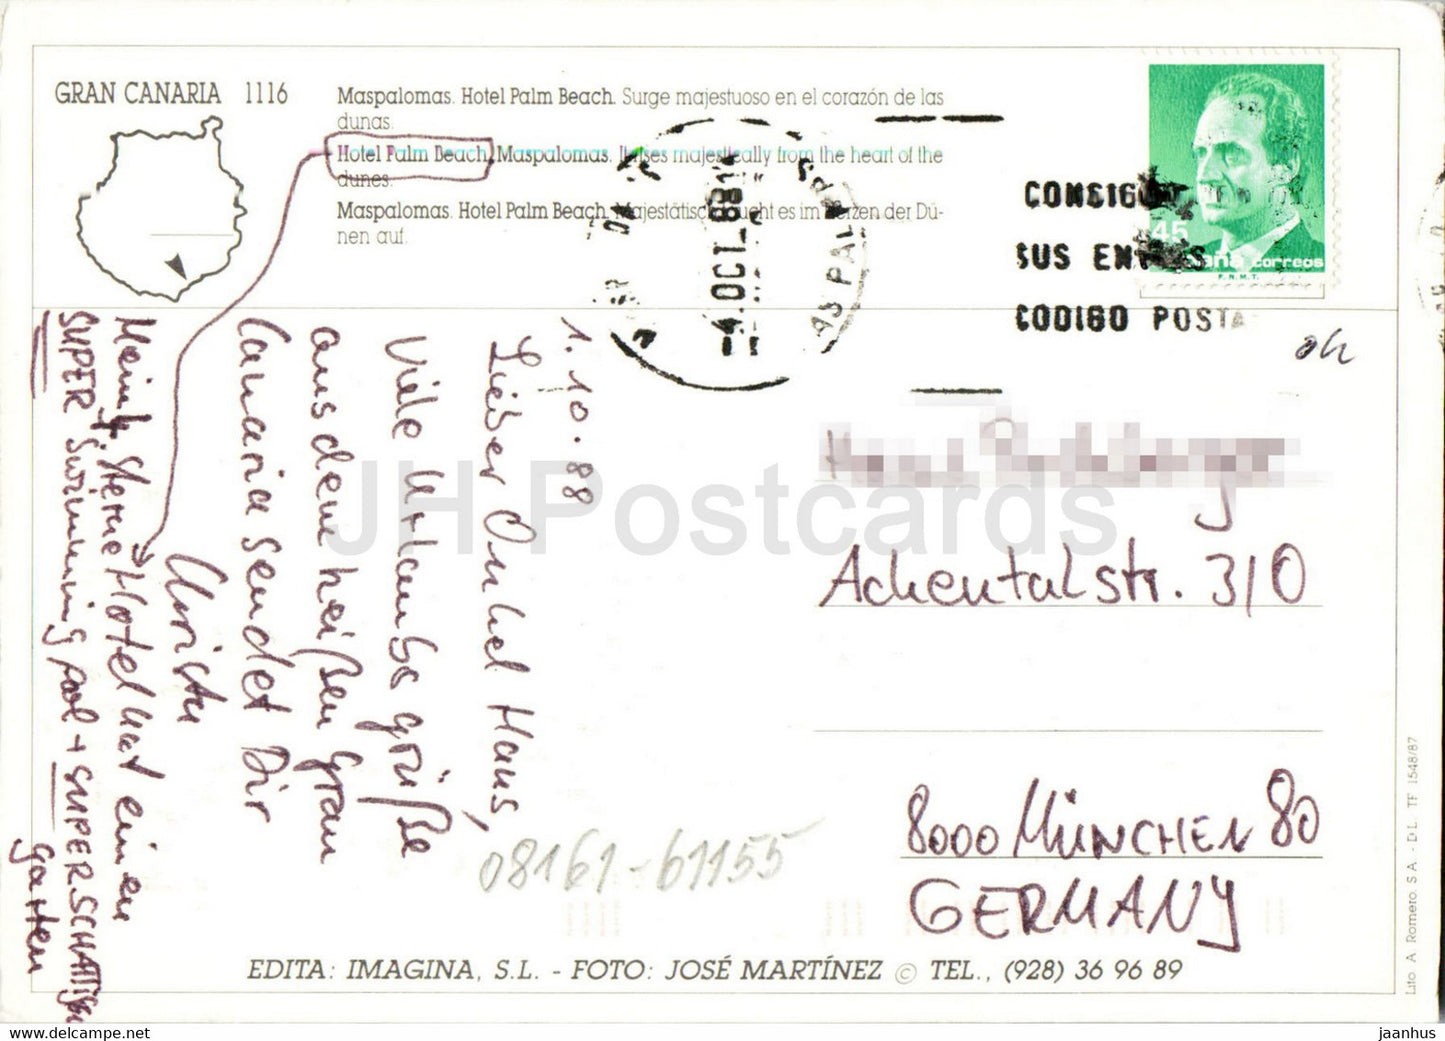 GRAN CANARIA 1116
Maspalomas. Hotel Palm Beach. Surge majestuoso en el corazón de las
dunas.
Hotel Palm Beach, Maspalomas. It rises majestically from the heart of the
dunes.
Maspalomas. Hotel Palm Beach. Majestätisch taucht es im Herzen der Dü-
nen auf.
-4.OCT.88
LAS PALMAS
CONSIGNE EN
SUS ENVIOS
CODIGO POSTAL
45
España correos
F.N.M.T.
1.10.88
Lieber Onkel Hans,
Viele Urlaubsgrüße
aus dem heißen Gran
Canaria sendet Dir
Mein 4 Sterne Hotel hat einen
SUPER Swimming pool + SUPER SCHATTIGEN
Garten
Achentalstr. 310
8000 MÜNCHEN 80
GERMANY
08161-61155
EDITA: IMAGINA, S.L. - FOTO: JOSÉ MARTÍNEZ © TEL., (928) 36 96 89
Lito A Romero S A - D L TF 1548/87
JH Postcards
https://www.delcampe.net
jaanhus